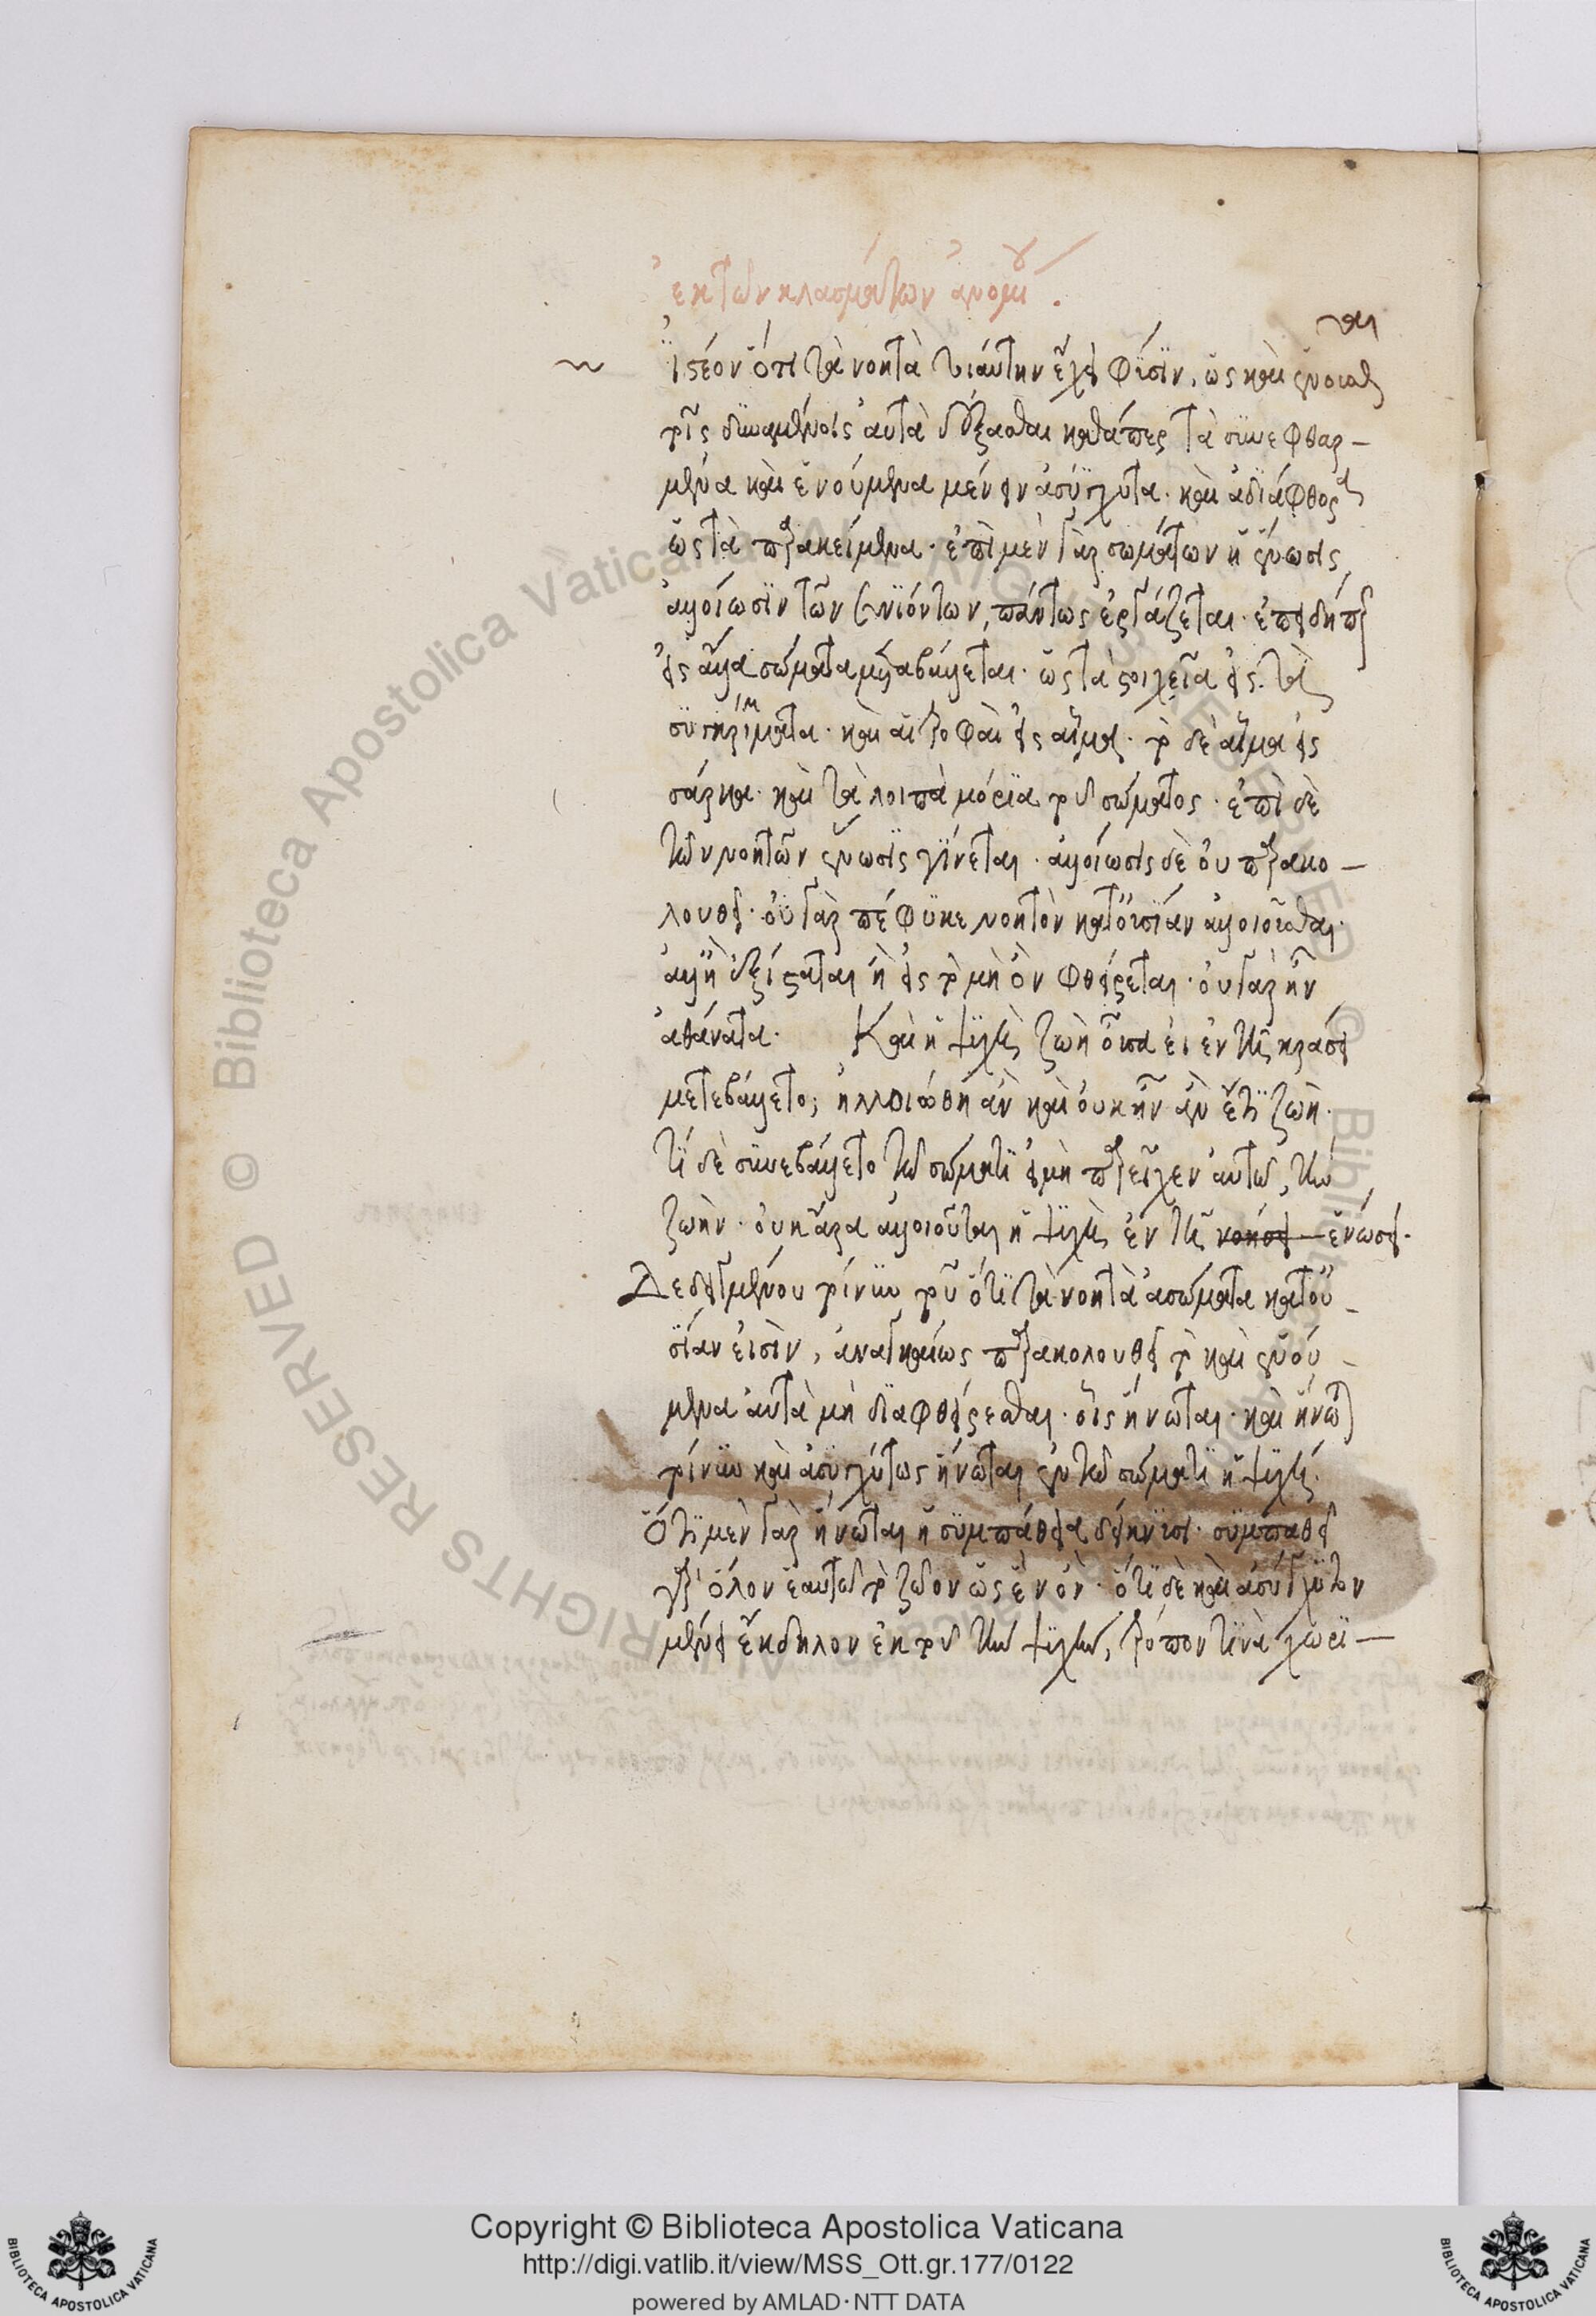 ἐκ τῶν κλασμάτων ἀμμωνίου.
ἰστέον ὅτι τὰ νοητὰ τοιαύτην ἔχει φύσιν, ὡς καὶ ἑνοῦσθαι
τοῖς δυναμένοις αὐτὰ δέξασθαι καθάπερ τὰ συνεφθαρ-
μένα καὶ ἑνούμενα μένειν ἀσύγχυτα. καὶ ἀδιάφθορα
ὡς τὰ παρακείμενα. ἐπὶ μὲν γὰρ σωμάτων ἡ ἕνωσις
ἀλλοίωσιν τῶν συνιόντων, πάντως ἐργάζεται. ἐπειδήπερ
εἰς ἄλλα σώματα μεταβάλλεται. ὡς τὰ στοιχεῖα εἰς τὰ
συγκρίματα. καὶ αἱ τροφαὶ εἰς αἷμα. τὸ δὲ αἷμα εἰς
σάρκα. καὶ τὰ λοιπὰ μόρια τοῦ σώματος. ἐπὶ δὲ
τῶν νοητῶν ἕνωσις γίνεται. ἀλλοίωσις δὲ οὐ παρακο-
λουθεῖ. οὐ γὰρ πέφυκε νοητὸν κατ' οὐσίαν ἀλλοιοῦσθαι.
ἀλλ' ἢ ἐξίσταται ἢ εἰς τὸ μὴ ὂν φθείρεται. οὐ γὰρ ἦν
ἀθάνατα. Καὶ ἡ ψυχὴ ζωὴ οὖσα εἰ ἐν τῇ κράσει
μετεβάλλετο, ἠλλοιώθη ἂν καὶ οὐκ ἦν ἂν ἔτι ζωὴ.
τί δὲ συνεβάλλετο τῷ σώματι εἰ μὴ παρεῖχεν αὐτῷ, τὴν
ζωήν. οὐκ ἄρα ἀλλοιοῦται ἡ ψυχὴ ἐν τῇ νοήσει ἑνώσει.
Δεδειγμένου τοίνυν τοῦ ὅτι τὰ νοητὰ ἀσώματα κατ' οὐ-
σίαν εἰσὶν, ἀναγκαίως παρακολουθεῖ τὸ καὶ ἑνού-
μενα αὐτὰ μὴ διαφθείρεσθαι. οἷς ἥνωται. καὶ ἥνωται
τοίνυν καὶ ἀσυγχύτως ἥνωται ἐν τῷ σώματι ἡ ψυχή.
Ὅτι μὲν γὰρ ἥνωται ἡ συμπάθεια δείκνυσι. συμπαθεῖ
γὰρ ὅλον ἑαυτῷ τὸ ζῷον ὡς ἓν ὂν. ὅτι δὲ καὶ ἀσύγχυτον
μένει ἔκδηλον ἐκ τοῦ τὴν ψυχὴν, τρόπον τινὰ χωρι-